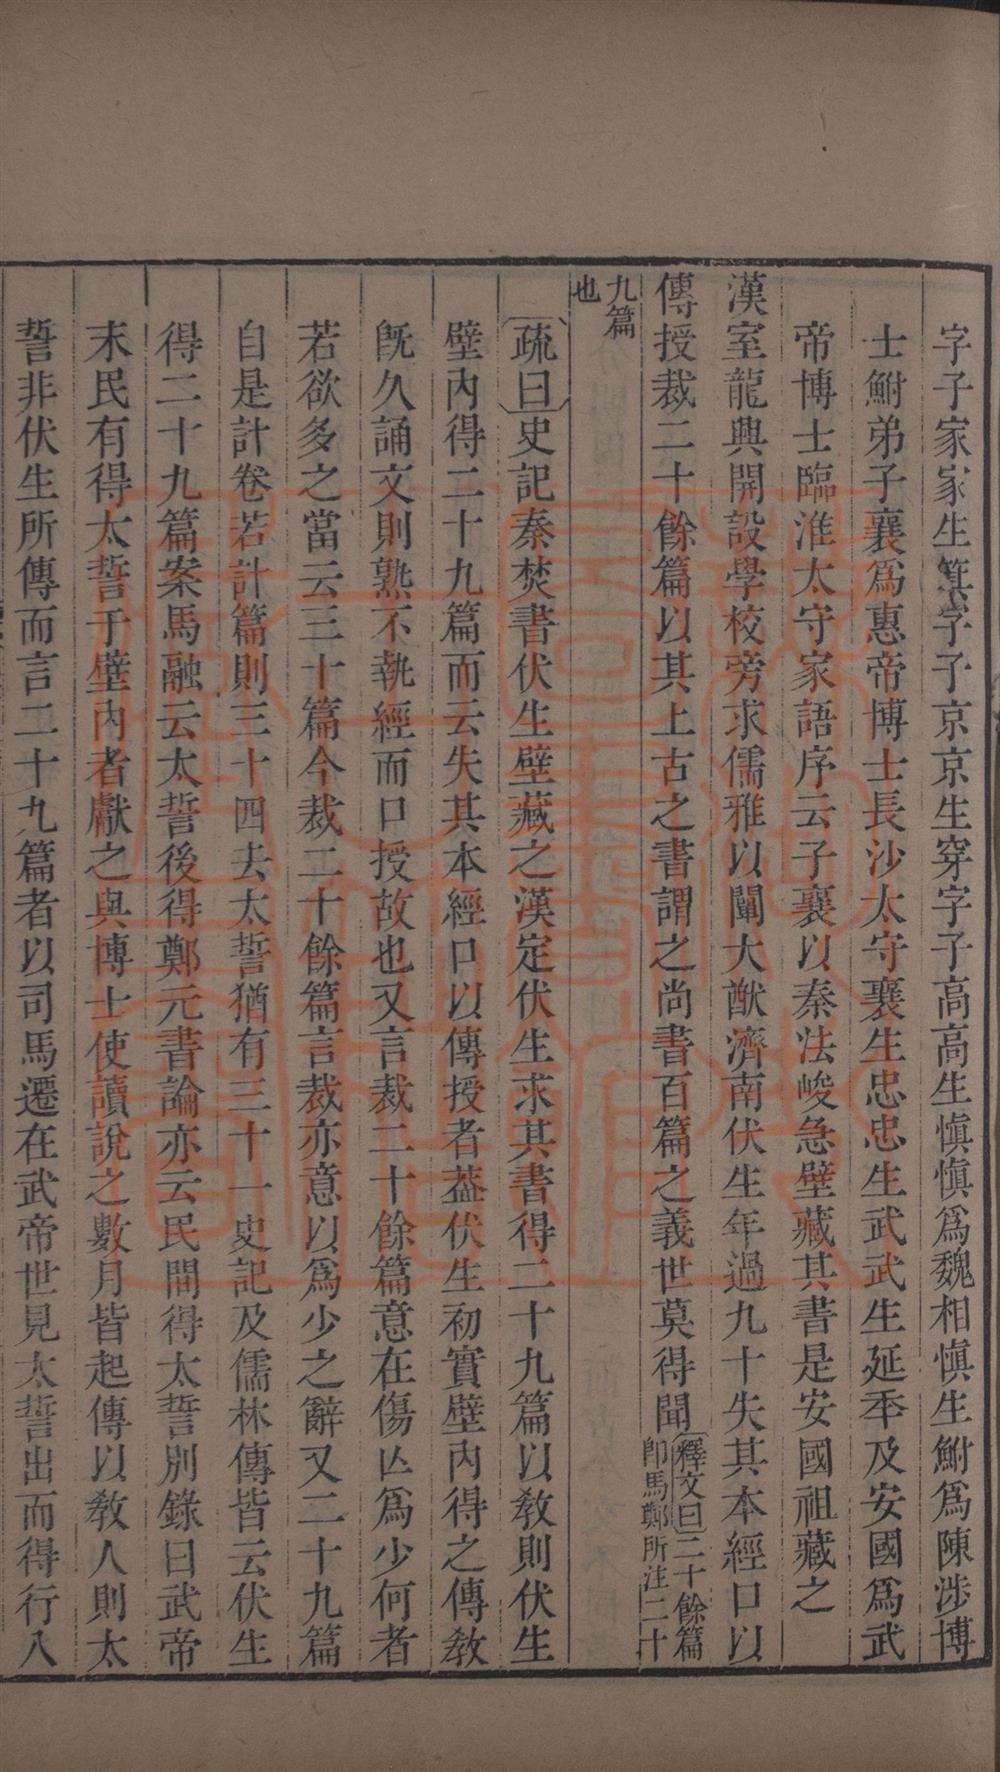 字子家家生箕字子京京生穿字子高高生愼愼爲魏相愼生鮒爲陳涉博
士鮒弟子襄爲惠帝博士長沙太守襄生忠忠生武武生延年及安國爲武
帝博士臨淮太守家語序云子襄以秦法峻急壁藏其書是安國祖藏之
漢室龍興開設學校旁求儒雅以闡大猷濟南伏生年過九十失其本經口以
傳授裁二十餘篇以其上古之書謂之尚書百篇之義世莫得聞
釋文曰二十餘篇
卽馬鄭所注二十
九篇
也
疏曰史記秦焚書伏生壁藏之漢定伏生求其書得二十九篇以敎則伏生
壁內得二十九篇而云失其本經口以傳授者葢伏生初實壁內得之傳敎
旣久誦文則熟不執經而口授故也又言裁二十餘篇意在傷亾爲少何者
若欲多之當云三十篇今裁二十餘篇言裁亦意以爲少之辭又二十九篇
自是計卷若計篇則三十四去太誓猶有三十一史記及儒林傳皆云伏生
得二十九篇案馬融云太誓後得鄭元書論亦云民間得太誓別錄曰武帝
末民有得太誓于壁內者獻之與博士使讀說之數月皆起傳以敎人則太
誓非伏生所傳而言二十九篇者以司馬遷在武帝世見太誓出而得行入